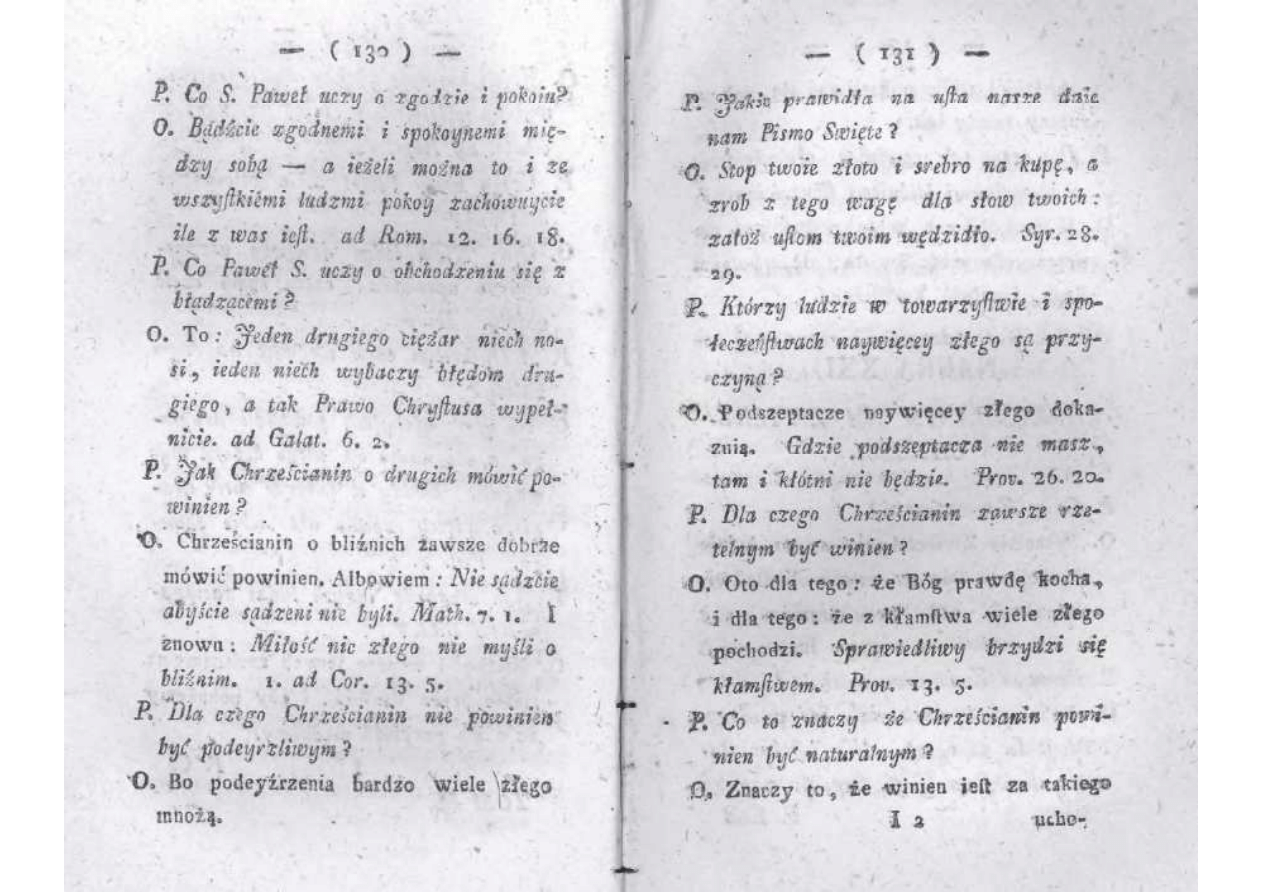 — ( 130 ) —
P. Co S. Paweł uczy o zgodzie i pokoiu?
O. Bądźcie zgodnemi i spokoynemi mię-
dzy sobą — a ieżeli można to i ze
wszyſtkiémi ludzmi pokoy zachowuycie
ile z was ieſt. ad Rom. 12. 16. 18.
P. Co Paweł S. uczy o obchodzeniu się z
błądzącemi?
O. To: Jeden drugiego ciężar niech no-
si, ieden niech wybaczy błędom dru-
giego, a tak Prawo Chryſtusa wypeł-
nicie. ad Galat. 6. 2.
P. Jak Chrześcianin o drugich mówić po-
winien?
O. Chrześcianin o bliźnich zawsze dobrze
mówić powinien. Albowiem: Nie sądzcie
abyście sądzeni nie byli. Math. 7. 1. I
znowu: Miłość nic złego nie myśli o
bliźnim. 1. ad Cor. 13. 5.
P. Dla czego Chrześcianin nie powinien
być podeyrzliwym?
O. Bo podeyźrzenia bardzo wiele złego
mnożą.
— ( 131 ) —
P. Jakie prawidła na uſta nasze daie
nam Pismo Swięte?
O. Stop twoie złoto i srebro na kupę, a
zrob z tego wagę dla słow twoich:
załoź uſtom twoim wędzidło. Syr. 28.
29.
P. Którzy ludzie w towarzyſtwie i spo-
łeczeńſtwach naywięcey złego są przy-
czyną?
O. Podszeptacze naywięcey złego doka-
znią. Gdzie podszeptacza nie masz,
tam i kłótni nie będzie. Prov. 26. 20.
P. Dla czego Chrześcianin zawsze rze-
telnym być winien?
O. Oto dla tego: że Bóg prawdę kocha,
i dla tego: że z kłamſtwa wiele złego
pochodzi. Sprawiedliwy brzydzi się
kłamſtwem. Prov. 13. 5.
P. Co to znaczy że Chrześcianin powi-
nien być naturalnym?
O. Znaczy to, że winien jeſt za takiego
I 2 ucho-